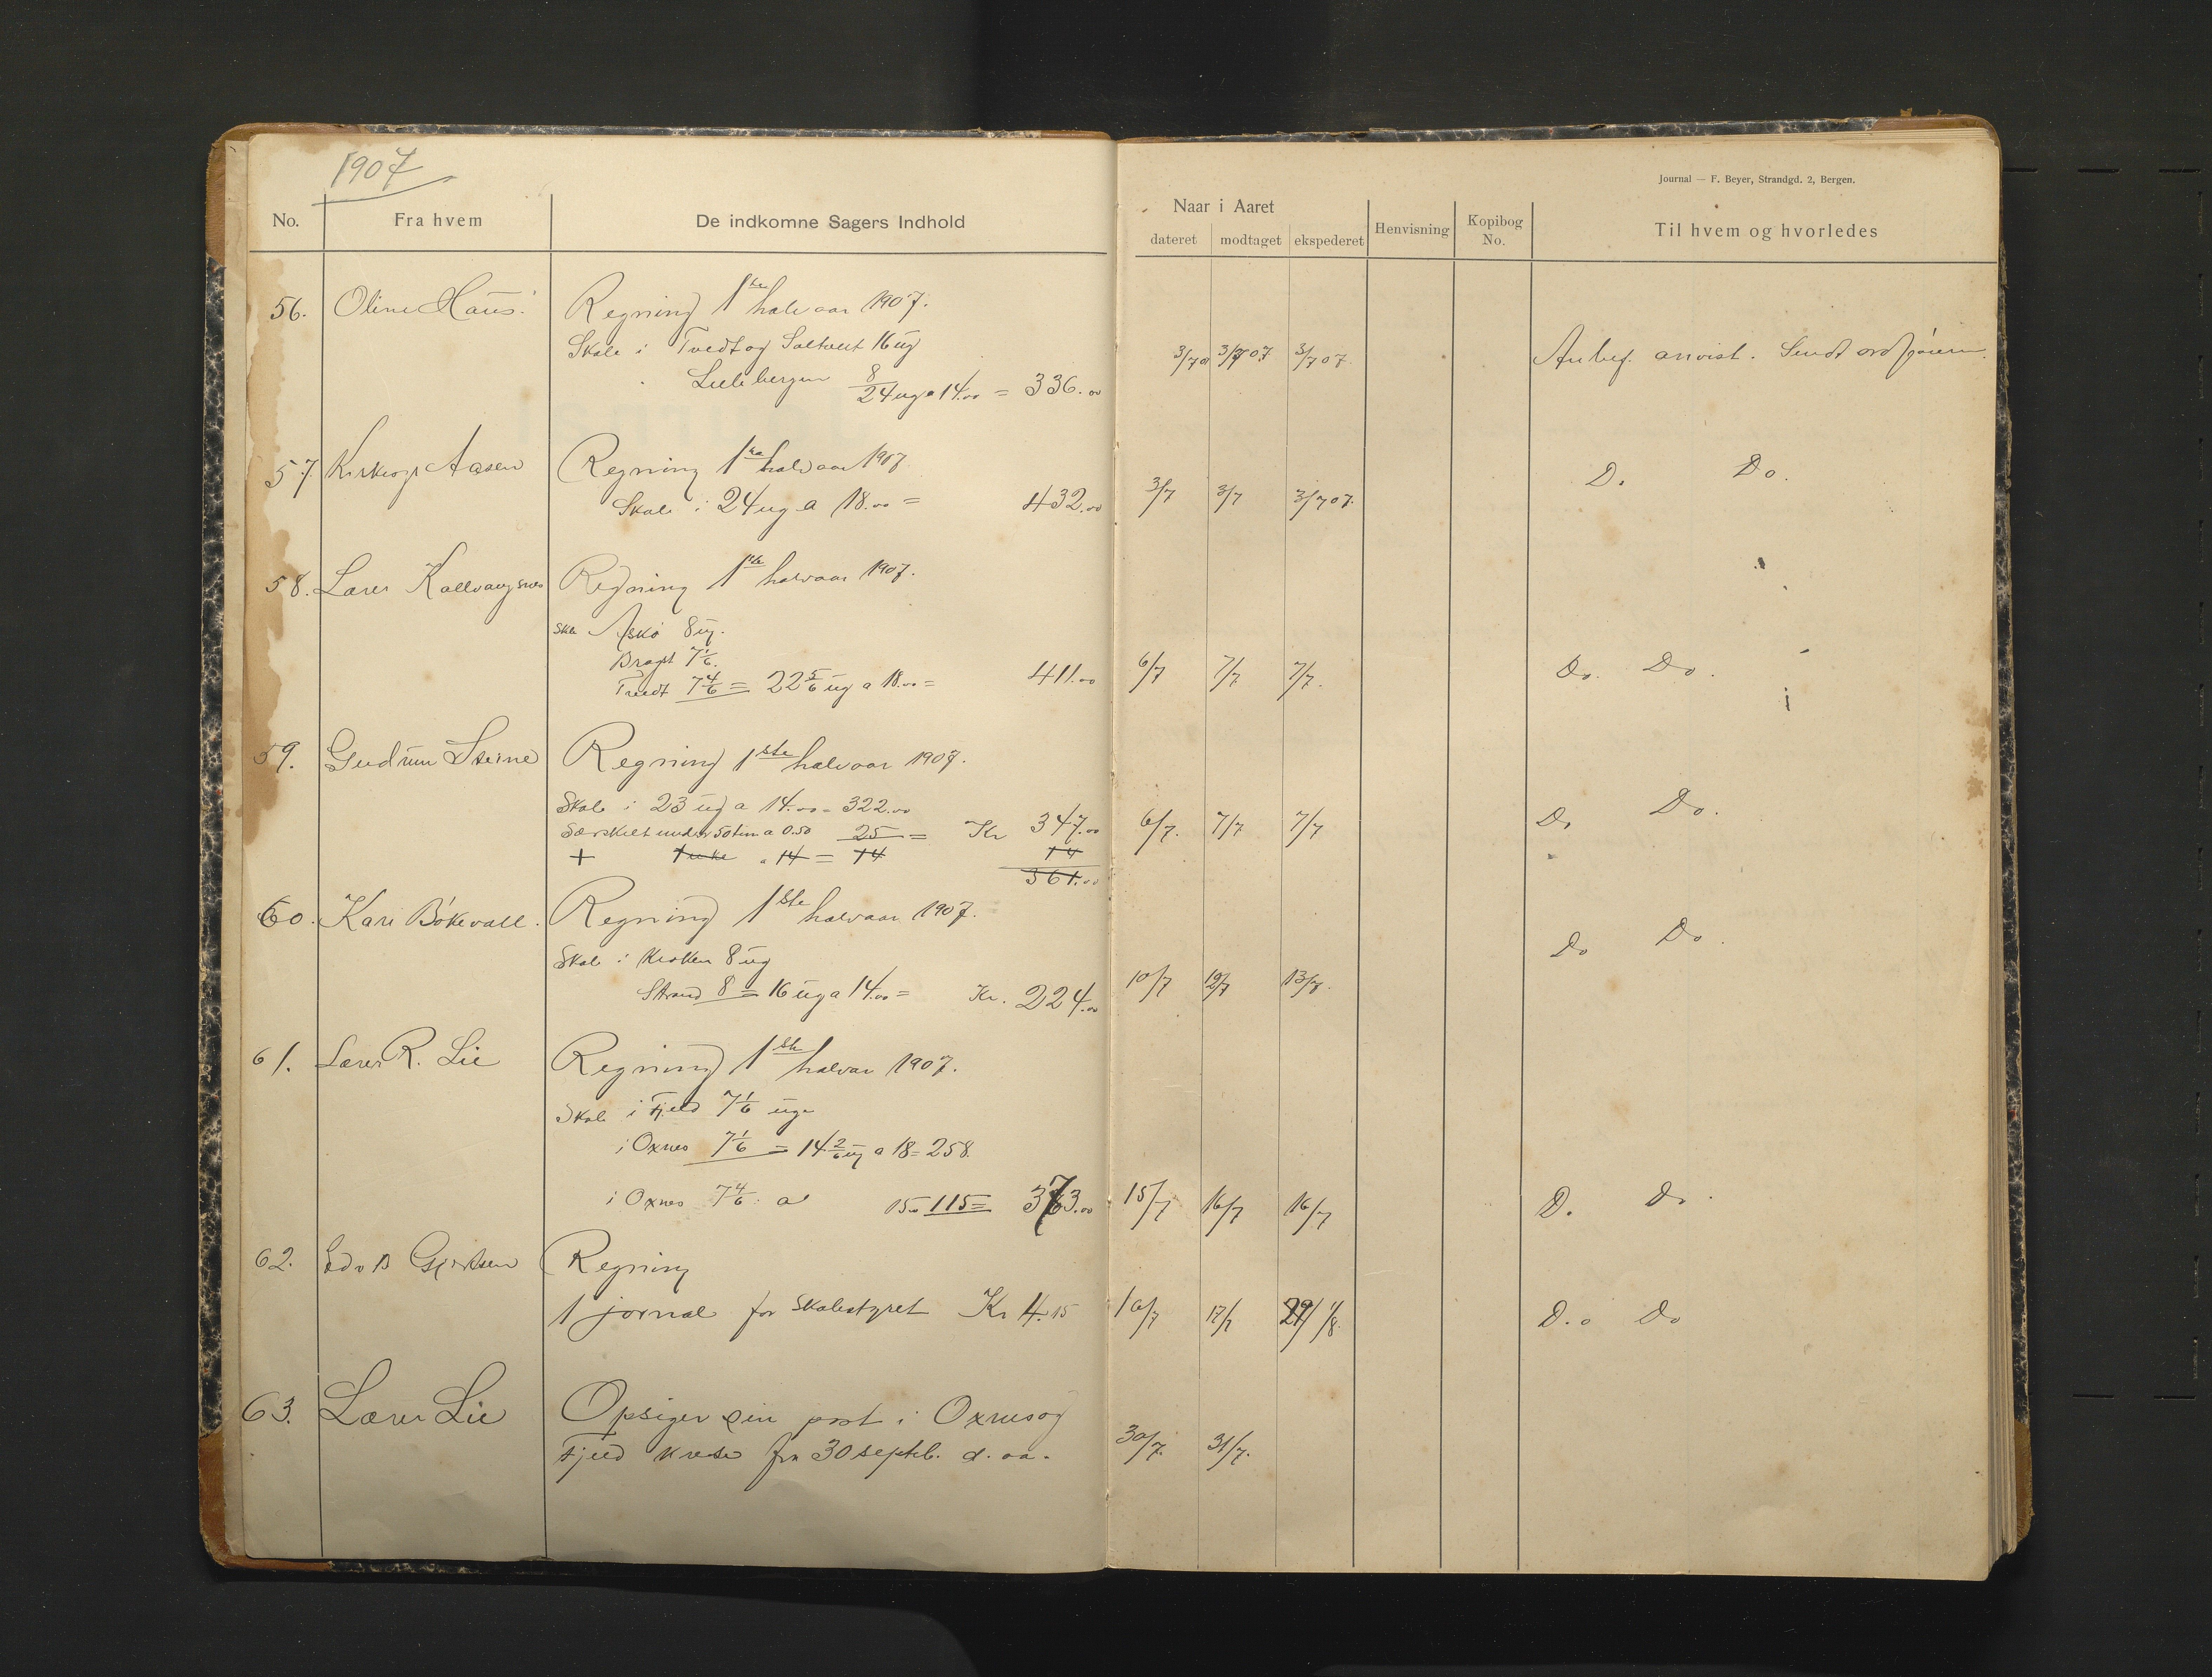 1907
No. Fra hvem De indkomne Sagers Indhold
56. Oline Haus. Regning 1ste halvaar 1907.
Skole i Tvedt og Saltveit 16 ug
Lillebergen 8
24 ug a 14.00 = 336.00
57. Kirkesgr Aasen Regning 1ste halvaar 1907
Skole i 24 ug a 18.00 = 432.00
58. Lærer Regning 1ste halvaar 1907.
Skle Askø 8 ug.
7 1/6.
Tvedt 7 4/6 = 22 5/6 ug a 18.00 = 411.00
59. Gudrun Steine Regning 1ste halvaar 1907.
Skole i 23 ug a 14.00 = 322.00
Særskilt under 50 tim a 0.50 25 = Kr 347.00
+ 1 uke a 14 = 14 14
361.00
60. Kari Bøkevall. Regning 1ste halvaar 1907.
Skole i Kroken 8 ug
Strand 8 = 16 ug a 14.00 = Kr. 224.00
61. Lærer R. Lie Regning 1ste halvaar 1907.
Skole i Fjeld 7 1/6 uge
i Oxnes 7 1/6 = 14 2/6 ug a 18 = 258
i Oxnes 7 4/6 a 15.00 115 = 373.00
62. Edv B Gjertsen Regning
1 jornal for Skolestyret Kr 4.15
63. Lærer Lie Opsiger sin post i Oxnes og
Fjeld krese fra 30 septb. d. aa.
Journal — F. Beyer, Strandgd. 2, Bergen.
Naar i Aaret
dateret modtaget ekspederet Henvisning Kopibog No. Til hvem og hvorledes
3/7 07 3/7 07 3/7 07. Anbef. anvist. Sendt ordføreren.
3/7 3/7 3/7 07. D. Do.
6/7 7/7 7/7. Do. Do.
6/7. 7/7 7/7 Do Do.
10/7 12/7 13/7. Do Do.
15/7 16/7 16/7 D. Do.
16/7 17/7 29/ 1/8. D.o Do
30/7. 31/7.